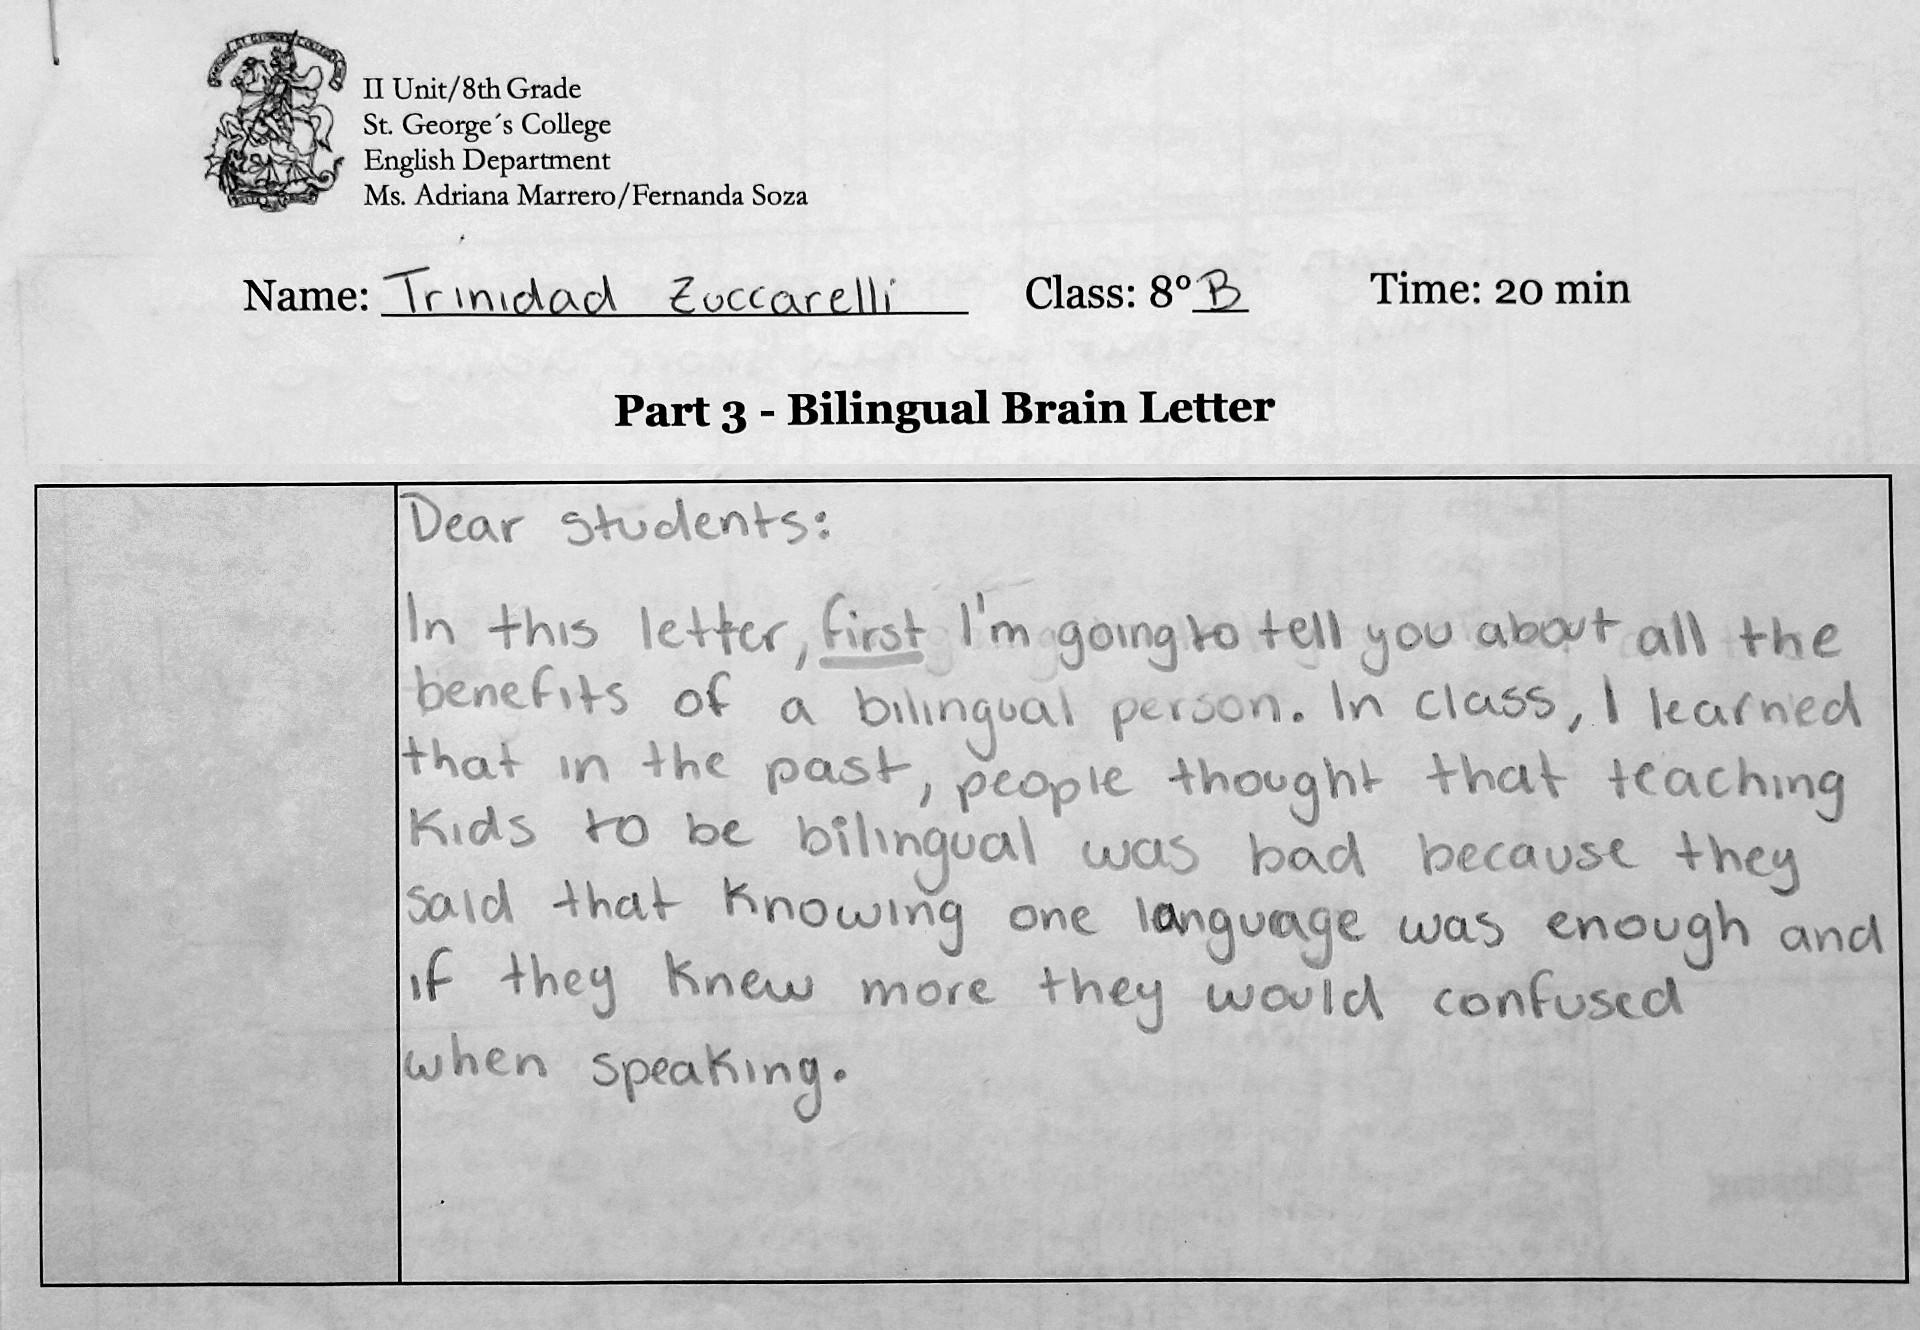 II Unit/8th Grade
St. George´s College
English Department
Ms. Adriana Marrero/Fernanda Soza
Name: Trinidad Zuccarelli Class: 8º B Time: 20 min
Part 3 - Bilingual Brain Letter
Dear students:
In this letter, first I'm going to tell you about all the
benefits of a bilingual person. In class, I learned
that in the past, people thought that teaching
Kids to be bilingual was bad because they
said that knowing one language was enough and
if they knew more they would confused
when speaking.